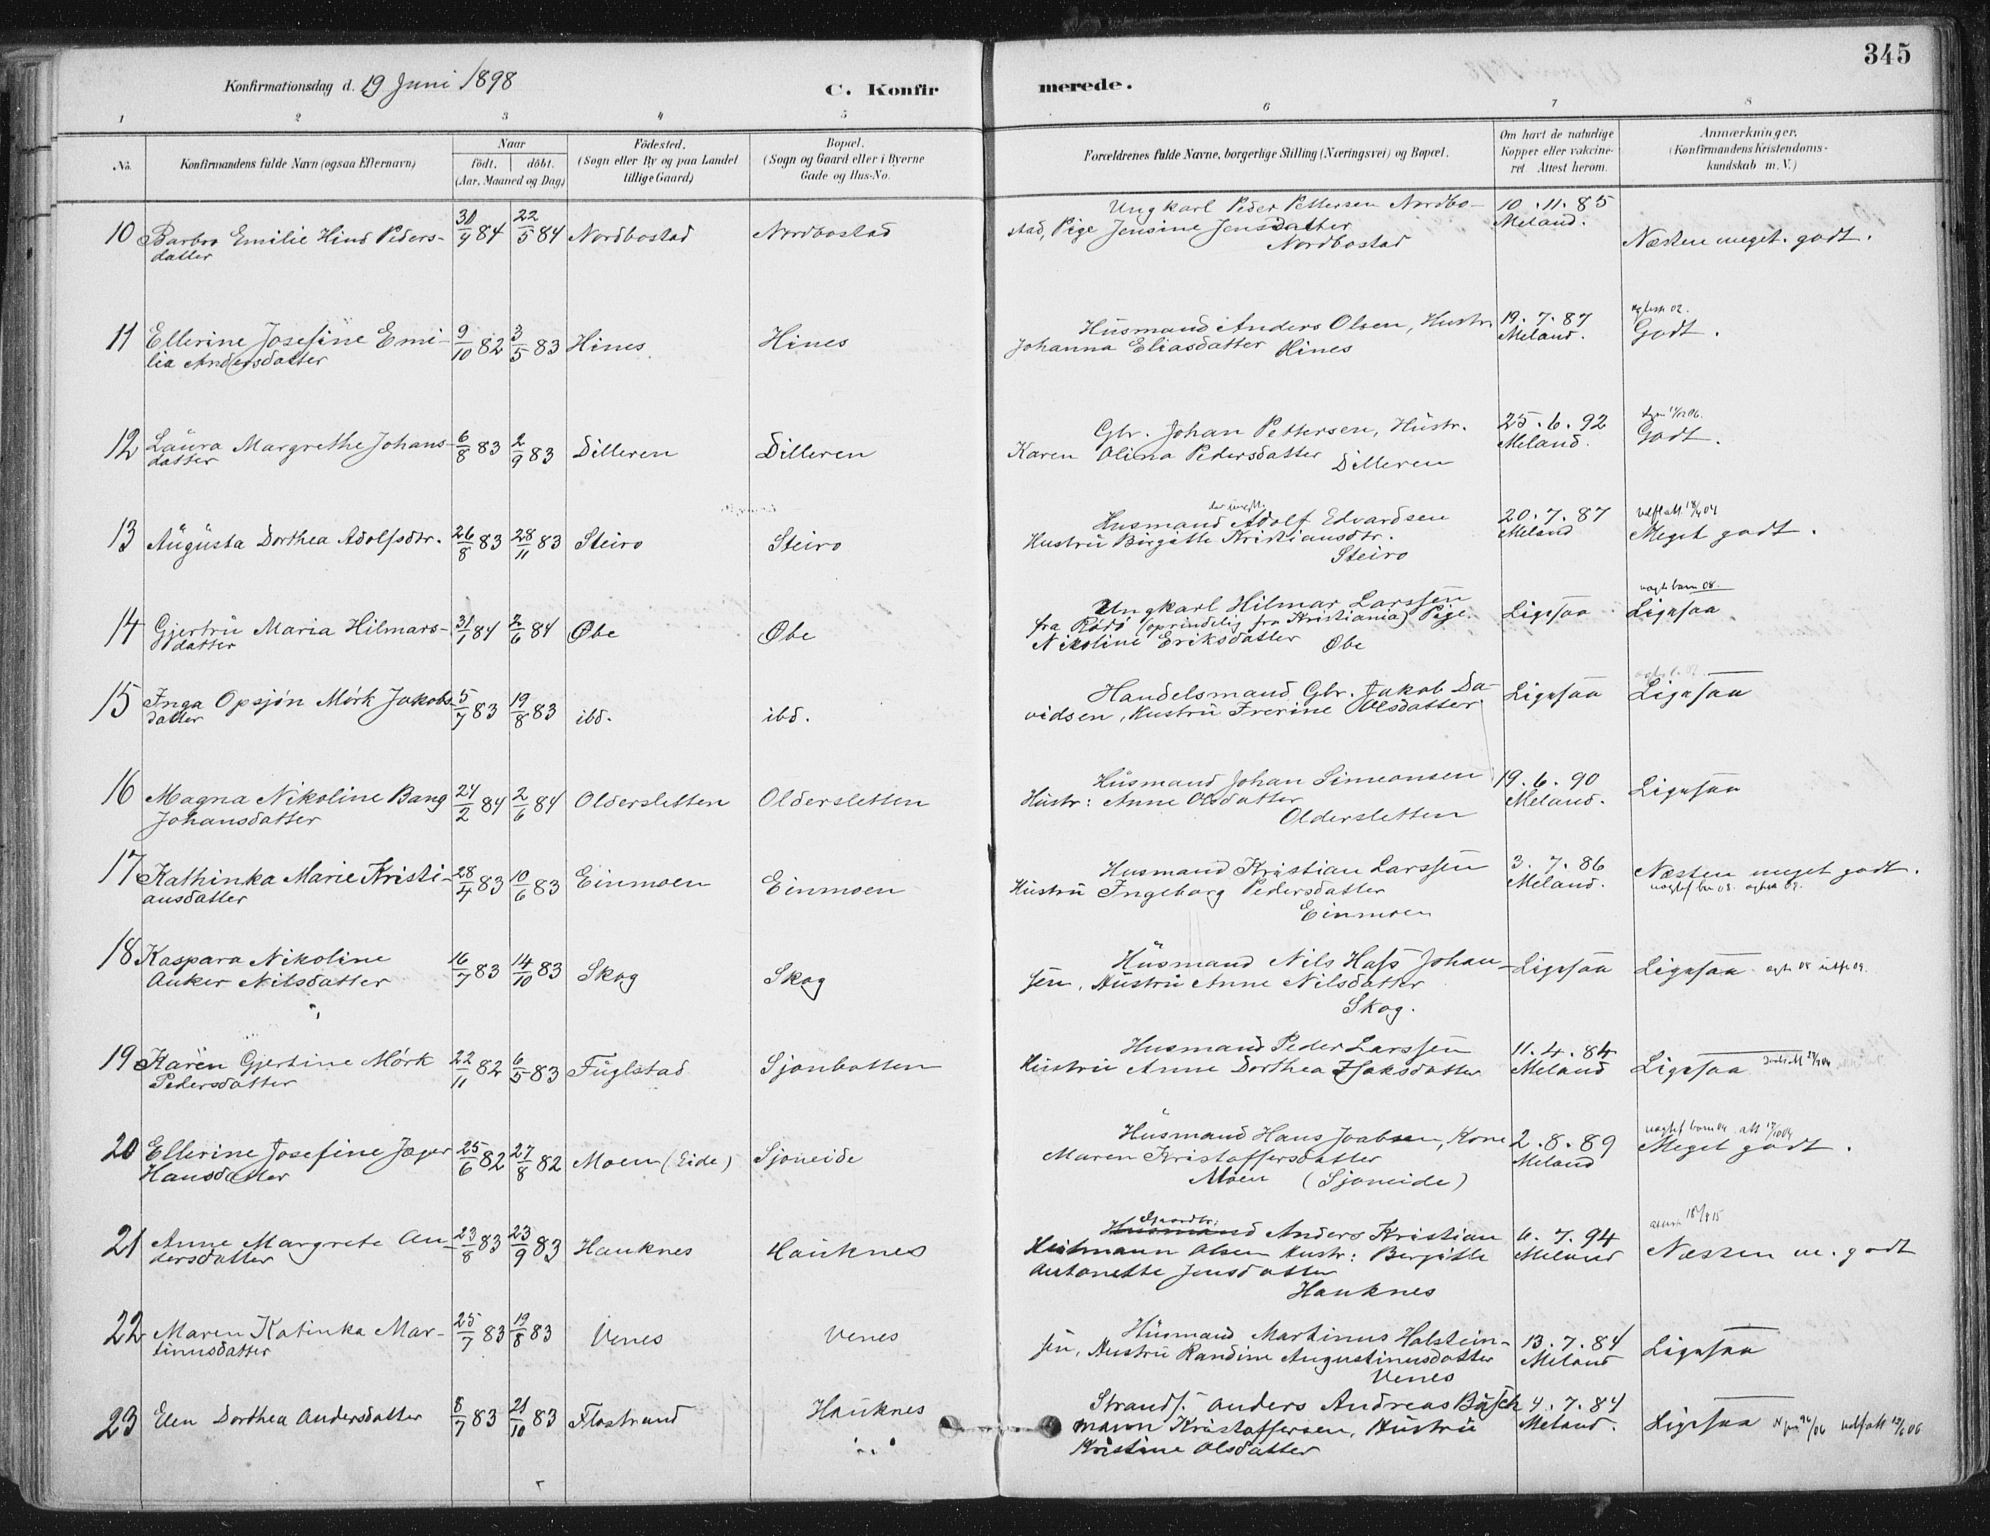 345
Konfirmationsdag d. 19 Juni 1898
C. Konfirmerede.
1 2 3 4 5 6 7 8
No. Konfirmandens fulde Navn (ogsaa Efternavn) Naar födt. döbt. (Aar, Maaned og Dag) Födested. (Sogn eller By og paa Landet tillige Gaard) Bopæl. (Sogn og Gaard eller i Byerne Gade og Hus-No. Forældrenes fulde Navne, borgerlige Stilling (Næringsvei) og Bopæl. Om havt de naturlige Kopper eller vaccineret. Attest herom. Anmærkninger. (Konfirmandens Kristendomskundskab m. V.)
10 Barbro Emilie Hind Peders- 30/4 84 22/5 84 Nordbostad Nordbostad Ungkarl Peder Pettersen Nordbo- 10.11.85
datter stad, Pige Jensine Jensdatter Meland.
Nordbostad Næsten meget godt.
11 Ellerine Josefine Emi- 9/10 82 3/5 83 Hines Hines Husmand Anders Olsen, Hustr. 19.7.87 Godt.
lia Andersdatter Johanna Eliasdatter Hines Meland.
12 Laura Margrethe Johans- 6/8 83 2/9 83 Dilleren Dilleren Gbr. Johan Pettersen, Hustr. 25.6.92 Godt.
datter Karen Olina Pedersdatter Dilleren Meland.
13 Augusta Dorthea Adolfsdtr. 26/8 83 28/11 83 Steiro Steiro Husmand Adolf Edvardsen 20.7.87 Meget godt.
Hustru Birgitte Kristiansdtr. Meland
Steiro
14 Gjertru Maria Hilmars- 31/7 84 2/6 84 Øbe Øbe Ungkarl Hilmar Larssen Ligesaa Ligesaa
datter fra Rödö (oprindelig fra Kristiania) Pige
Nikoline Eriksdatter Øbe
15 Inga Opsjøn Mørk Jakobs- 5/7 83 19/8 83 ibd. ibd. Handelsmand Gbr. Jakob Da- Ligesaa Ligesaa
datter vidsen, Hustru Frerine Olsdatter
16 Magna Nikoline Bang 24/2 84 2/6 84 Oldersletten Oldersletten Husmand Johan Simeonsen 19.6.90 Ligesaa
Johansdatter Hustr: Anne Olsdatter Meland.
Oldersletten
17 Kathinka Marie Kristi- 28/4 83 10/6 83 Einmoen Einmoen Husmand Kristian Larssen 3.7.86 Næsten meget godt.
ansdatter Hustru Ingeborg Pedersdatter Meland.
Einmoen
18 Kaspara Nikoline 16/7 83 14/10 83 Skog Skog Husmand Nils Hass Johan- Ligesaa Ligesaa
Anker Nilsdatter sen, Hustru Anne Nilsdatter
Skog.
19 Karen Gjertine Mörk 22/11 82 6/5 83 Fuglstad Sjonbotten Husmand Peder Larssen 11.4.84 Ligesaa
Pedersdatter Hustru Anne Dorthea Isaksdatter Meland
20 Ellerine Josefine Jæger 25/6 82 27/8 82 Moen (Eide) Sjoneide Husmand Hans Joabsen, Kone 2.8.89 Meget godt.
Hansdatter Maren Kristoffersdatter Meland
Moen (Sjoneide)
21 Anne Margrete An- 23/8 83 23/9 83 Hauknes Hauknes Husmand Anders Kristian 6.7.94 Næsten m. godt
dersdatter Heitmann Olsen Hustr: Bergitte Meland
Antonette Jensdatter
Hauknes
22 Maren Katinka Mar- 25/7 83 19/8 83 Venes Venes Husmand Martinus Holstein- 13.7.84 Ligesaa
tinusdatter sen, Hustru Randine Augustinusdatter Meland
Venes
23 Elen Dorthea Andersdatter 8/7 83 21/10 83 Flostrand Hauknes Strands. Anders Andreas Busch 4.7.84 Ligesaa
mann Kristoffersen, Hustru Meland.
Kristine Olsdatter